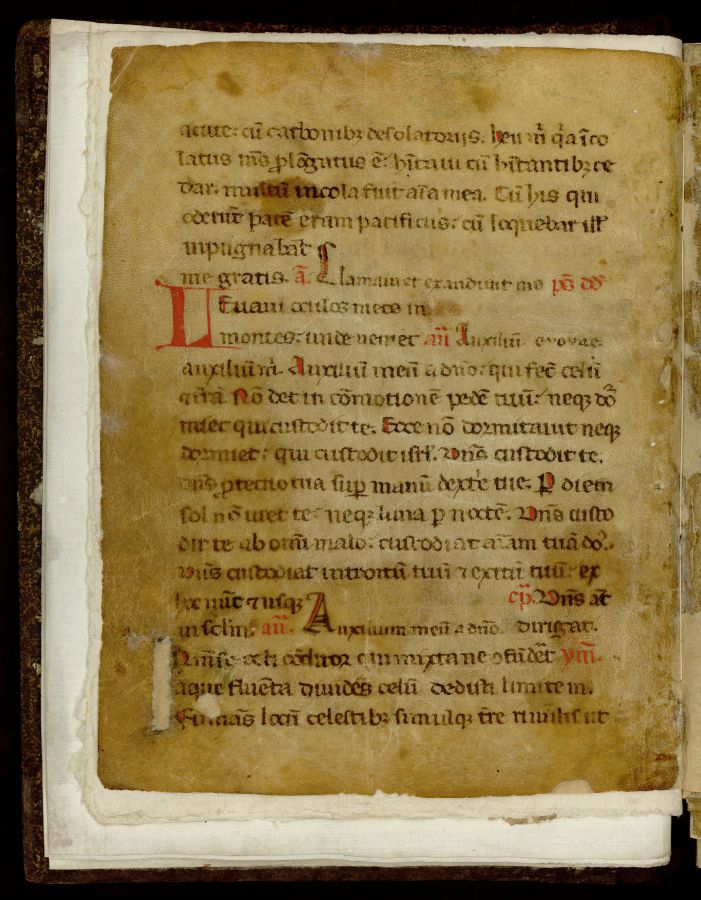 acute: cū carbonibꝫ desolatorijs. heu m̄ q̄a īco
latus m̄s ꝓlōgatus ē: hītaui cū hītantibꝫ ce
dar. multū incola fuit aīa mea. Cū his qui
oderūt pacē eram pacificus: cū loquebar illˀ
inpugnabāt
me gratis. a. Clamaui et exaudiuit me ps dd
Leuaui oculos meos in
montes: unde ueniet añ Auxiliū euouae
auxiliū m̄. Auxiliū meū a dn̄o: qui fec̄ celū
⁊ t̄rā. Nō det in cōmotionē pedē tuū: neqꝫ do
mitet qui custodit te. Ecce nō dormitauit neqꝫ
dormiet: qui custodit isrl̄. Dn̄s custodit te.
dn̄s ꝓtectio tua suꝑ manū dext̄e tue. P diem
sol nō uret te: neqꝫ luna ꝑ noctē. Dn̄s custo
dit te ab omī malo: custodiat aīam tuā do.
Dn̄s custodiat introitū tuū ⁊ exitū tuū: ex
hoc nūc ⁊ usqꝫ cp̄. Dn̄s aūt
in sclm̄. añ. Auxilium meū a dn̄o. dirigat.
Inm̄se celi cōditor qui mixta ne cōfūderēt ym̄.
aque fluēta diuidēs celū dedisti limitem.
Firmās locū celestibꝫ simulqꝫ t̄re riuulis ut